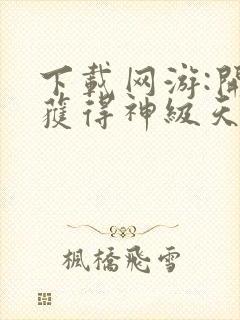 下載网游:開
獲得神級天
楓橋飛雪